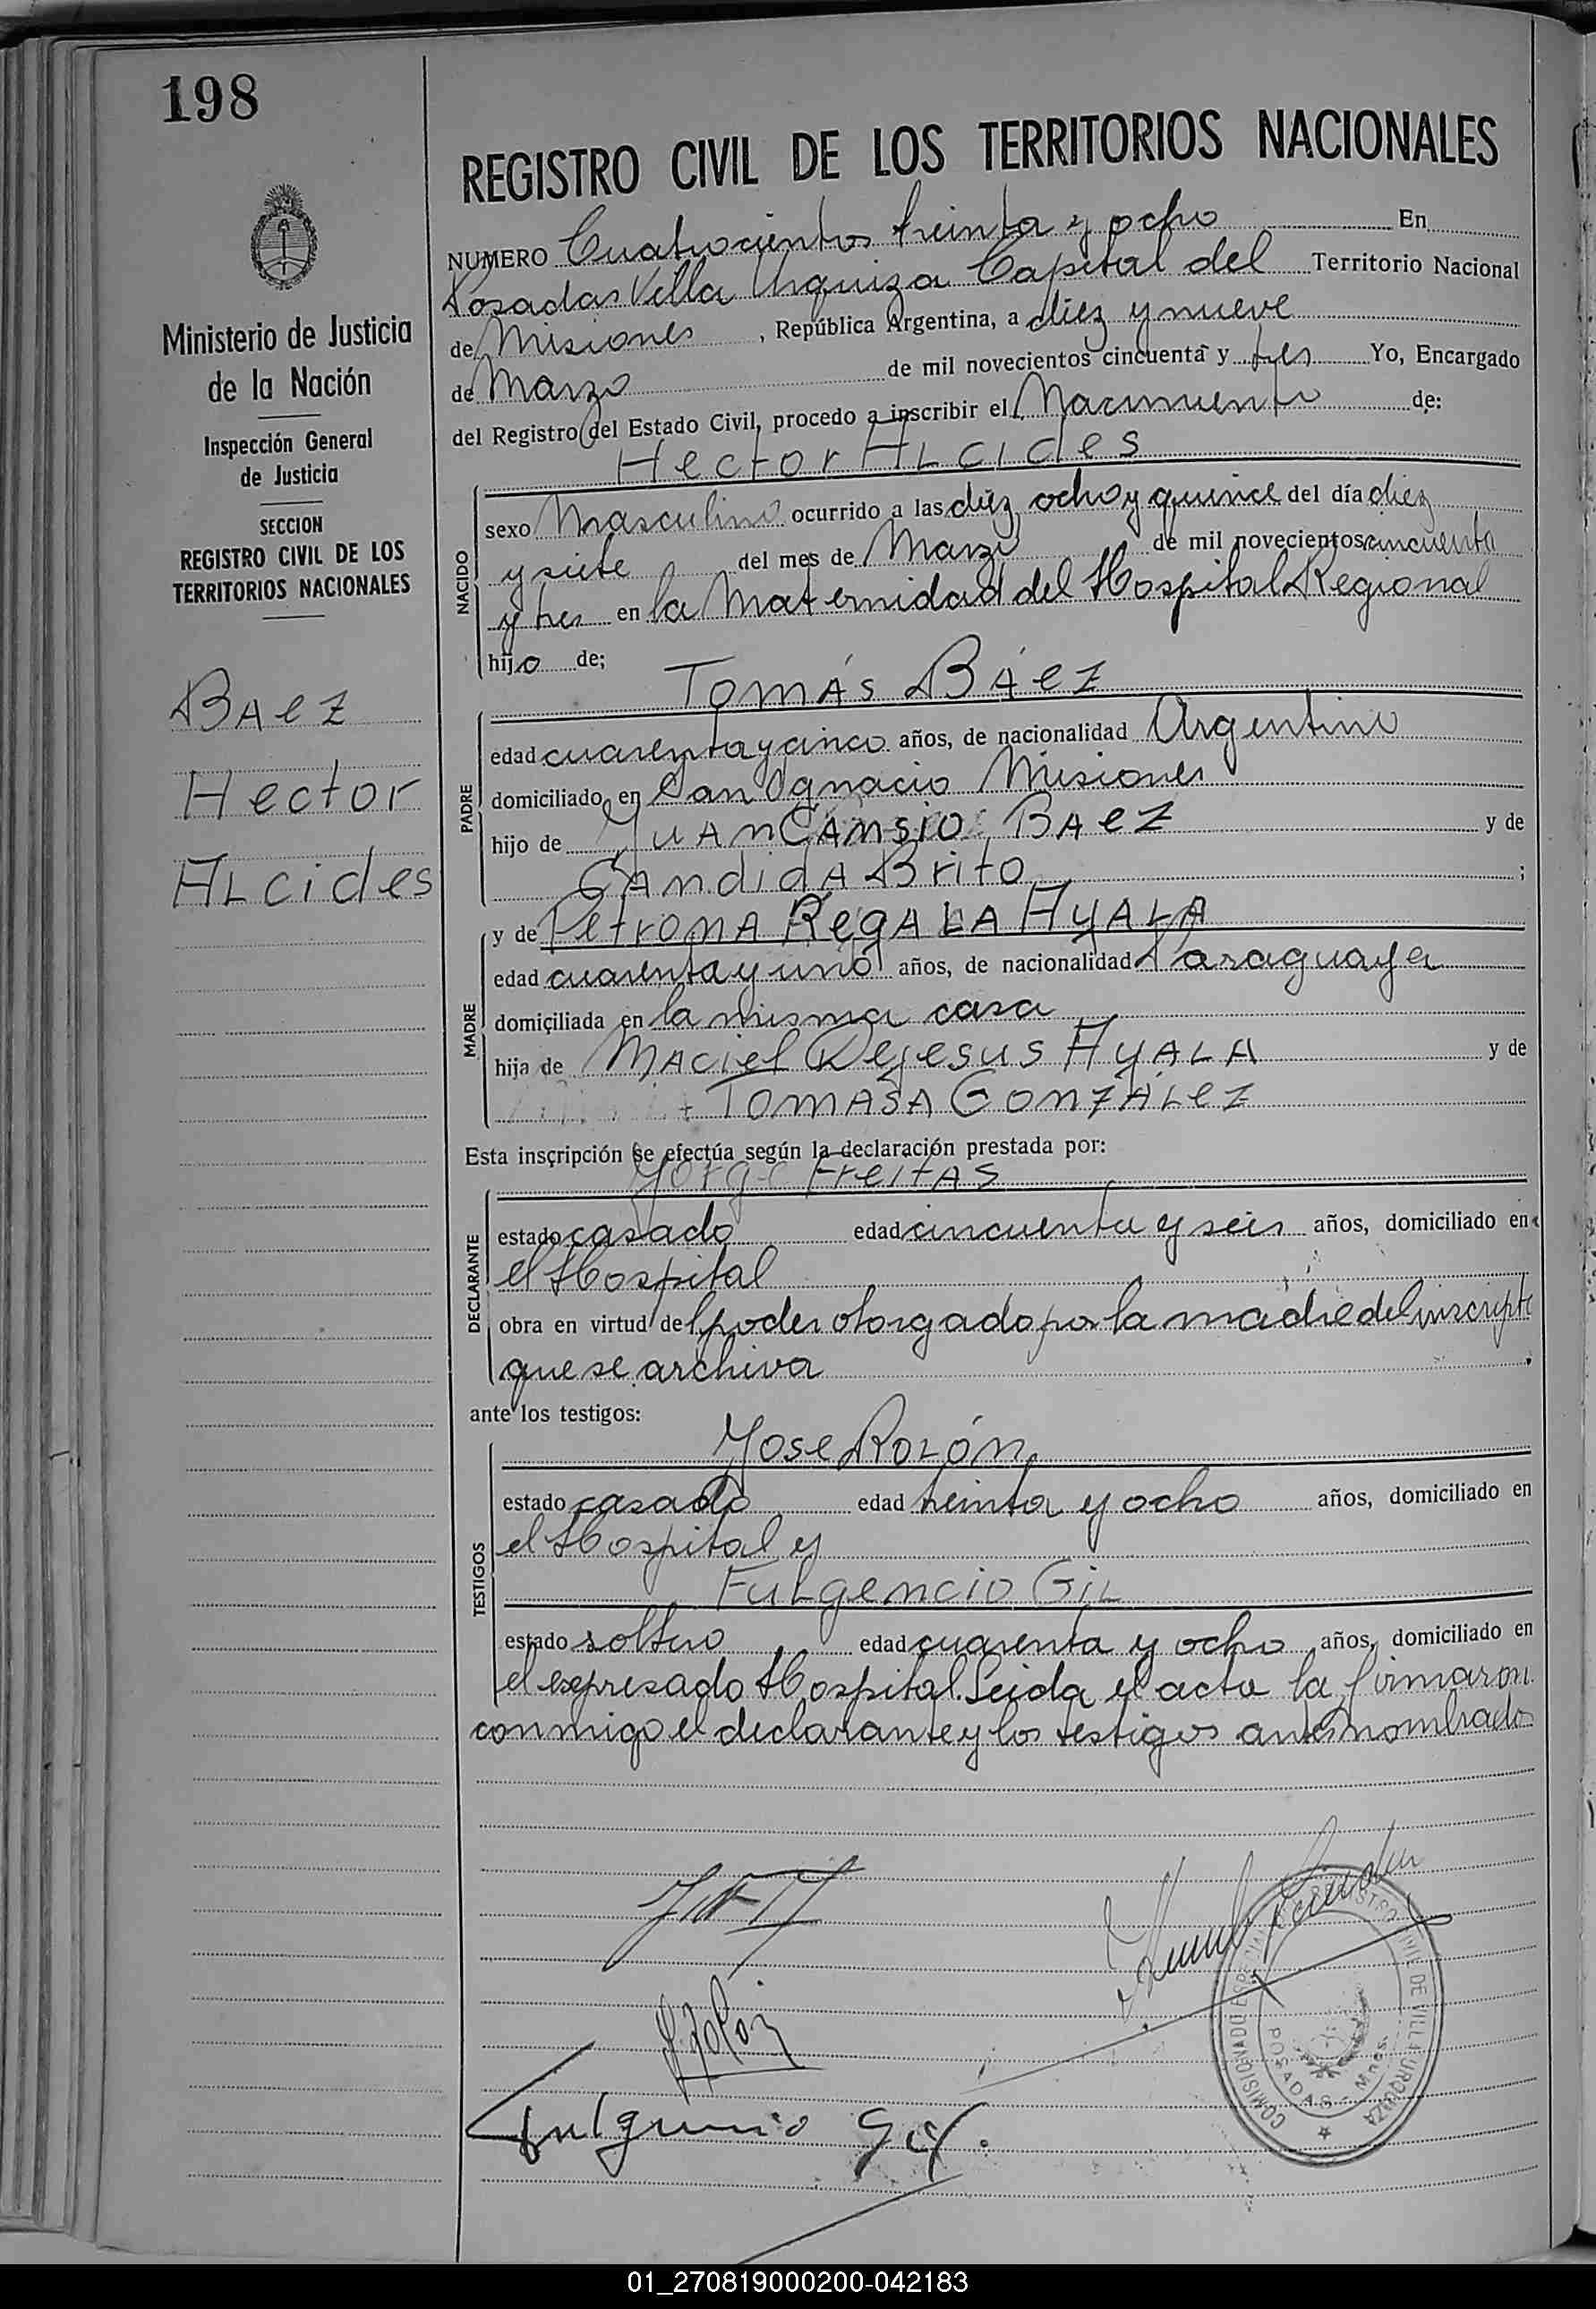 198
Ministerio de Justicia
de la Nación
Inspección General
de Justicia
SECCION
REGISTRO CIVIL DE LOS
TERRITORIOS NACIONALES
Baez
Hector
Alcides
REGISTRO CIVIL DE LOS TERRITORIOS NACIONALES
NUMERO Cuatrocientos treinta y ocho En
Posadas Villa Urquiza Capital del Territorio Nacional
de Misiones, República Argentina, a diez y nueve
de Marzo de mil novecientos cincuenta y tres Yo, Encargado
del Registro del Estado Civil, procedo a inscribir el Nacimiento de:
Hector Alcides
NACIDO
sexo Masculino ocurrido a las diez ocho y quince del día diez
y siete del mes de Marzo de mil novecientos cincuenta
y tres en la Maternidad del Hospital Regional
hijo de;
Tomás Báez
PADRE
edad cuarenta y cinco años, de nacionalidad Argentino
domiciliado en San Ignacio Misiones
hijo de Juan Cansio Baez y de
Candida Brito;
MADRE
y de Petrona Regala Ayala
edad cuarenta y uno años, de nacionalidad Paraguaya
domiciliada en la misma casa
hija de Maciel Dejesus Ayala y de
Tomasa González
Esta inscripción se efectúa según la declaración prestada por:
Jorge Freitas
DECLARANTE
estado casado edad cincuenta y seis años, domiciliado en
el Hospital
obra en virtud del poder otorgado por la madre del inscripto
que se archiva.
ante los testigos:
Jose Rolón
TESTIGOS
estado casado edad treinta y ocho años, domiciliado en
el Hospital y
Fulgencio Gil
estado soltero edad cuarenta y ocho años, domiciliado en
el expresado Hospital. Leida el acta la firmaron
conmigo el declarante y los testigos antes nombrados
Fulgencio Gil.
COMISIONADO ESPECIAL REGISTRO CIVIL DE VILLA URQUIZA
POSADAS - Mnes.
01_270819000200-042183